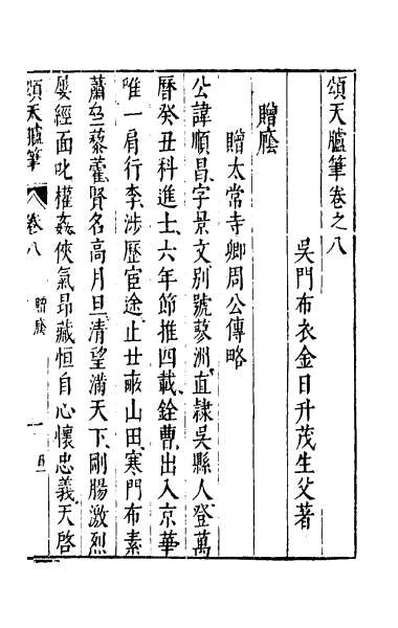 頌天臚筆卷之八
吳門布衣金日升茂生父著
贈廕
贈太常寺卿周公傳略
公諱順昌字景文别號蓼洲直隷吳縣人登萬
曆癸丑科進士六年節推四載銓曹出入京華
唯一肩行李涉歷宦途止廿畝山田寒門布素
蕭然藜藿賢名高月旦清望滿天下剛腸激烈
屢經面叱權姦俠氣昂藏恒自心懷忠義天啓
頌天臚筆
卷八
贈廕
一
五